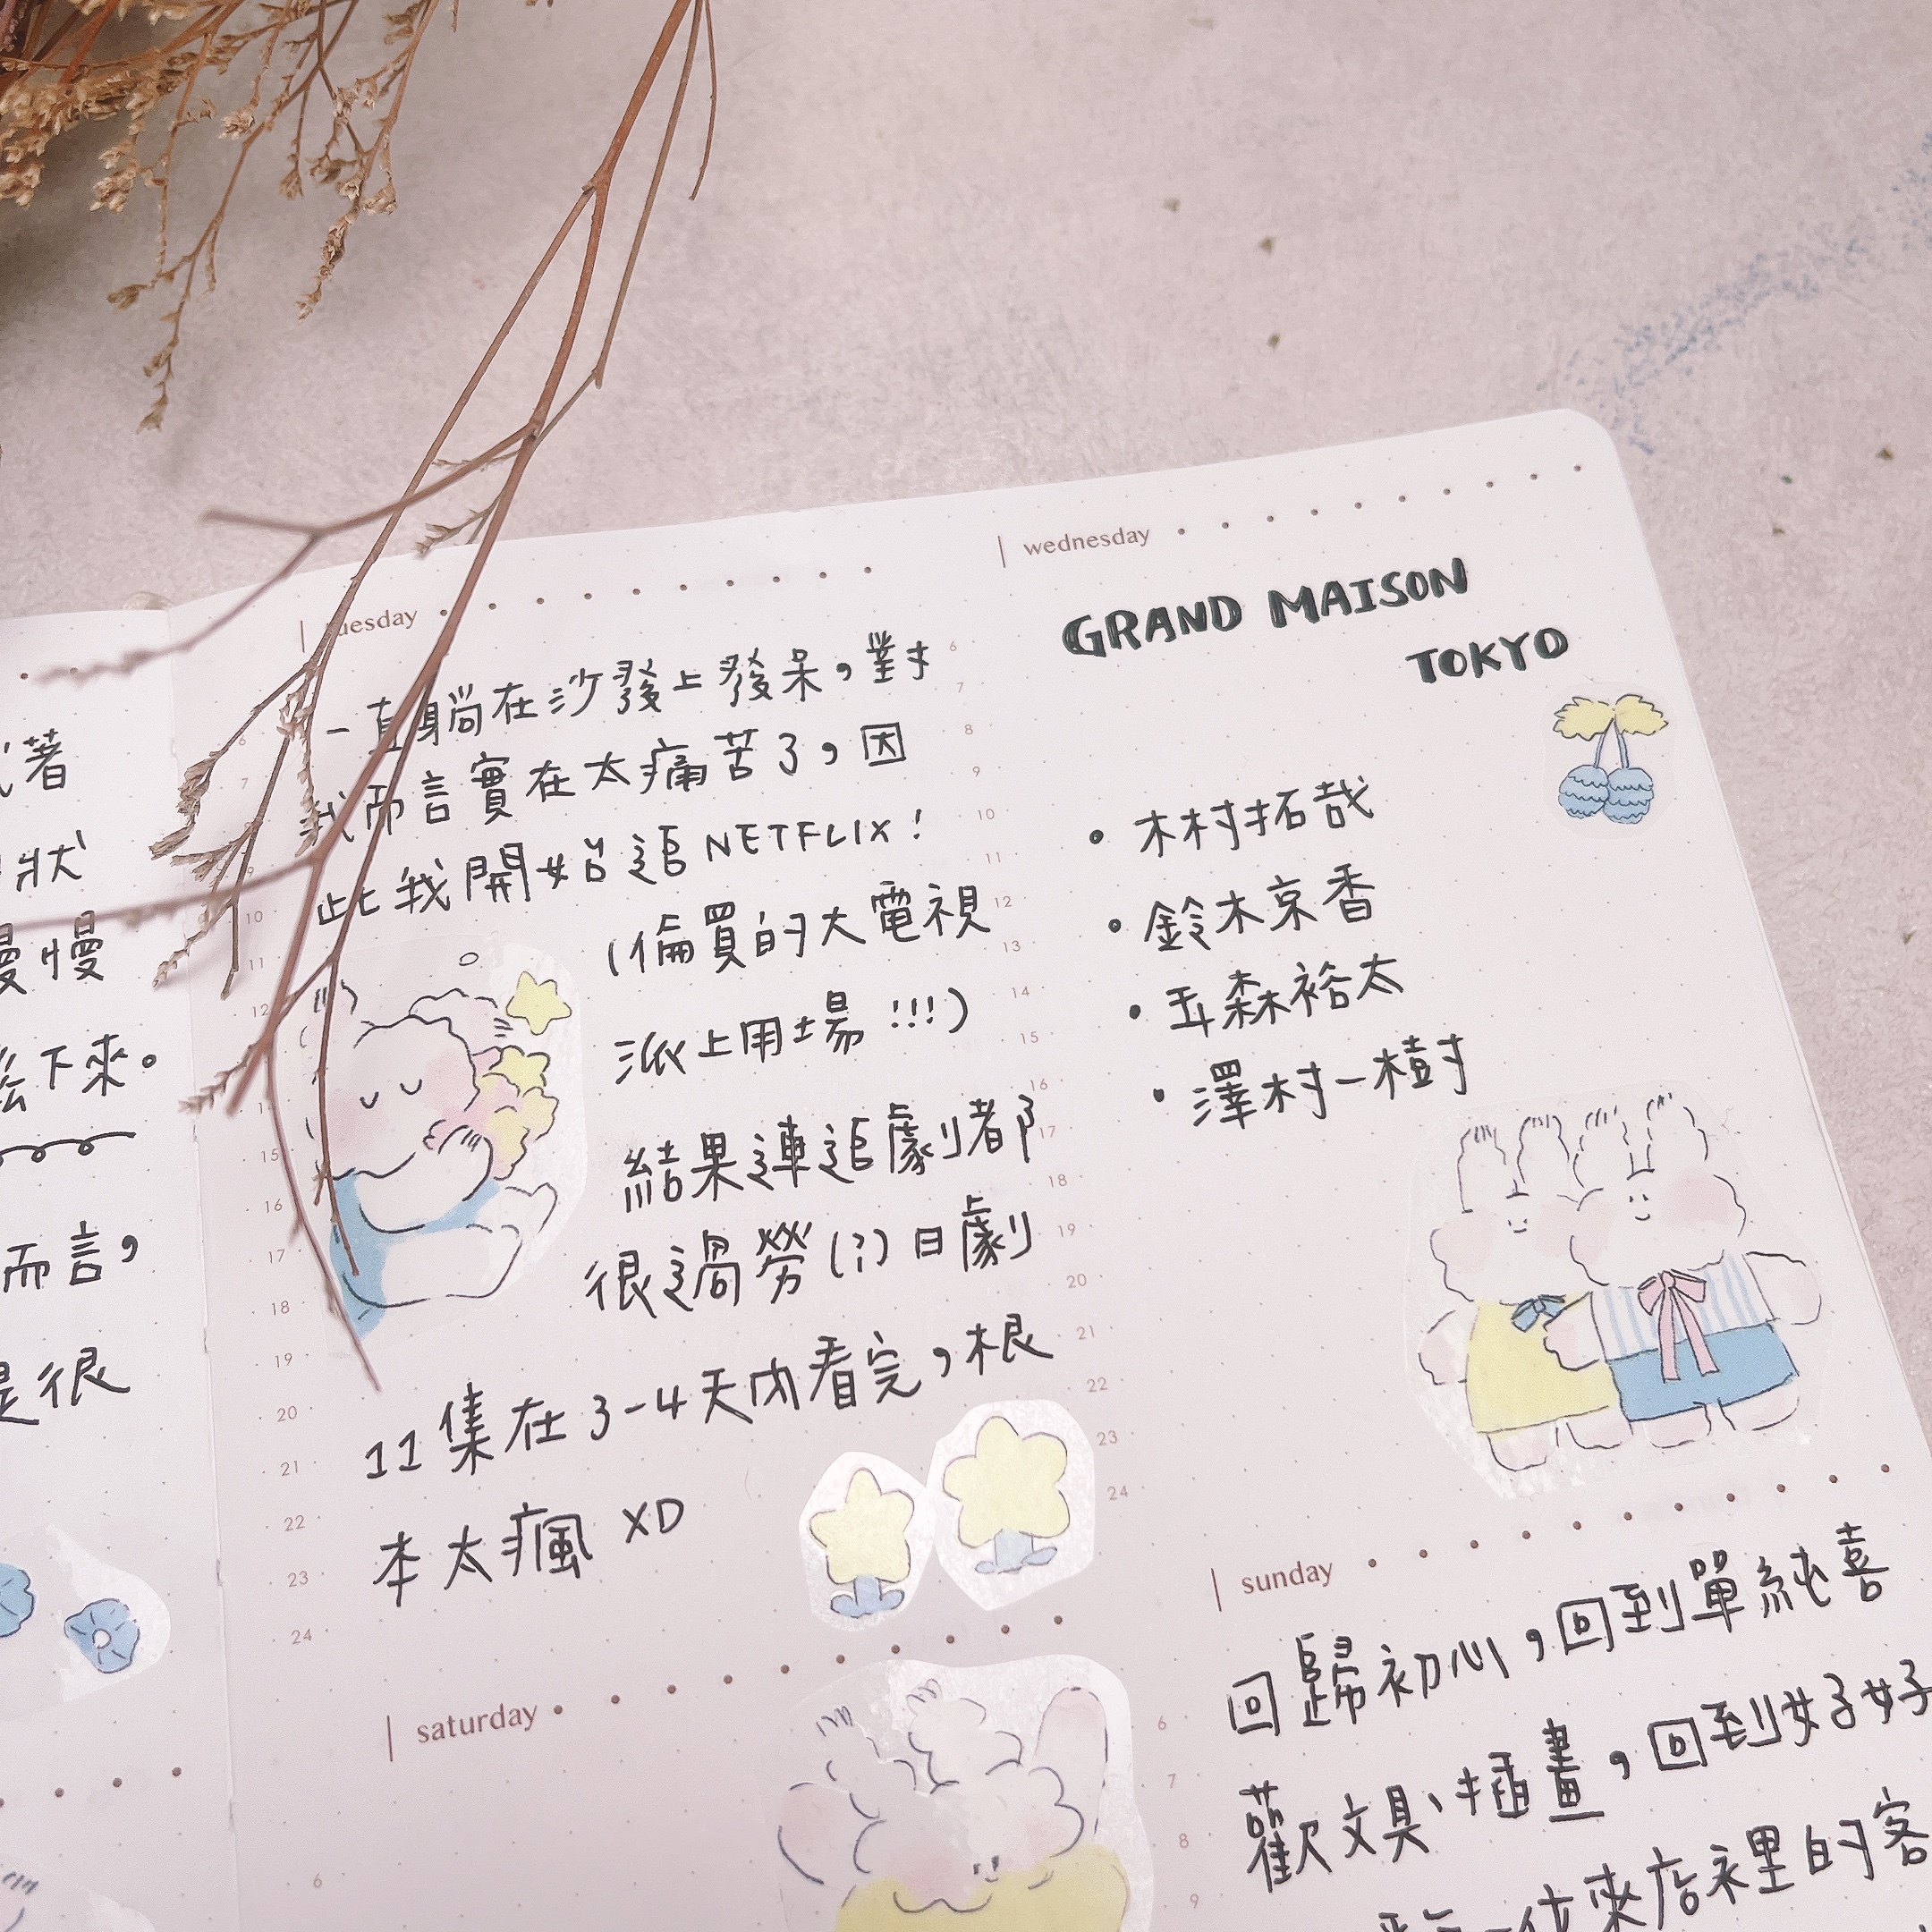 著
狀
慢慢
下來。
而言，
是很
tuesday
一直躺在沙發上發呆，對
我而言實在太痛苦了，因
此我開始追NETFLIX！
（倫買的大電視
派上用場!!!）
結果連追劇都
很過勞(?)日劇
11集在3-4天內看完，根
本太瘋 XD
wednesday
GRAND MAISON
TOKYO
• 木村拓哉
• 鈴木京香
• 玉森裕太
• 澤村一樹
saturday
sunday
回歸初心，回到單純喜
歡文具、插畫，回到好好
一位來店裡的客
6
7
8
9
10
11
12
13
14
15
16
17
18
19
20
21
22
23
24